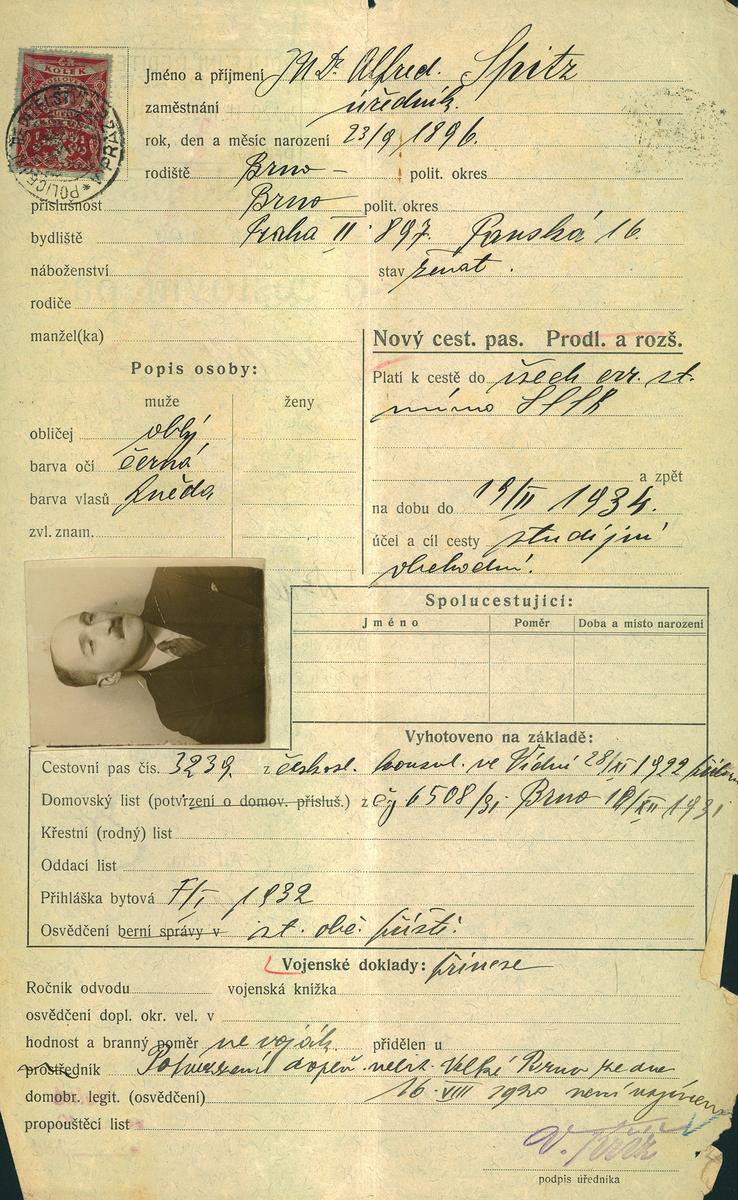 KOLEK
POLICEJNÍ ŘEDITELSTVÍ
Jméno a příjmení JUDr Alfred. Spitz
zaměstnání úředník.
rok, den a měsíc narození 23/9 1896.
rodiště Brno – polit. okres
příslušnost Brno polit. okres
bydliště Praha II 897. Panská 16.
náboženství stav ženat.
rodiče
manžel(ka)
Nový cest. pas. Prodl. a rozš.
Popis osoby:
muže ženy
obličej oblý
barva očí černá
barva vlasů hnědá
zvl. znam.
Platí k cestě do všech evr. st.
mimo SSSR
a zpět
na dobu do 19/II 1934.
účel a cíl cesty studijní
obchodní.
Spolucestující:
Jméno Poměr Doba a místo narození
Vyhotoveno na základě:
Cestovní pas čís. 3239. z českosl. konsul. ve Vídni 28/XI 1922
Domovský list (potvrzení o domov. přísluš.) z čj 6508/31 Brno XII 1931
Křestní (rodný) list
Oddací list
Přihláška bytová 7/I 1932
Osvědčení berní správy v st. obč. příští.
Vojenské doklady: přinese
Ročník odvodu vojenská knížka
osvědčení dopl. okr. vel. v
hodnost a branný poměr ne voják přidělen u
prostředník Potvrzení doplň. velit. Velké Brno ze dne
domobr. legit. (osvědčení) 16. VIII 1920 není vojínem
propouštěcí list
podpis úředníka